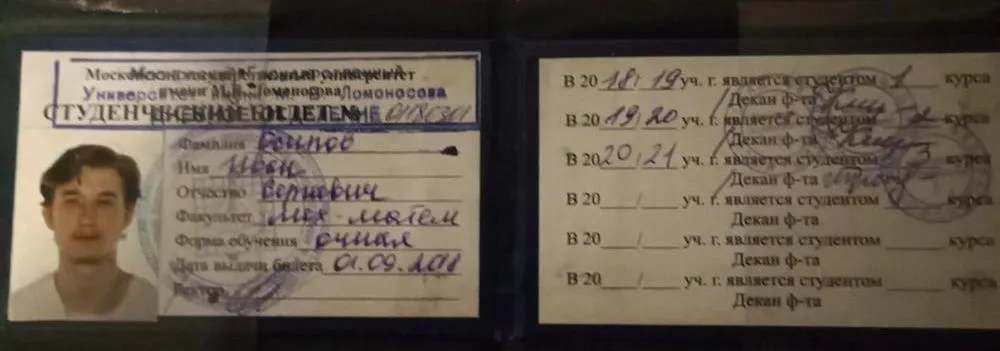 Московский государственный университет
имени М.В. Ломоносова
Университет имени М. В. Ломоносова
СТУДЕНЧЕСКИЙ БИЛЕТ №
Фамилия Осипов
Имя Иван
Отчество Сергеевич
Факультет Мех-матем
Форма обучения очная
Дата выдачи билета 01.09.2018
Ректор
В 20 18/19 уч. г. является студентом 1 курса
Декан ф-та
В 20 19/20 уч. г. является студентом 2 курса
Декан ф-та
В 20 20/21 уч. г. является студентом 3 курса
Декан ф-та
В 20 ___/___ уч. г. является студентом ______ курса
Декан ф-та
В 20 ___/___ уч. г. является студентом ______ курса
Декан ф-та
В 20 ___/___ уч. г. является студентом ______ курса
Декан ф-та